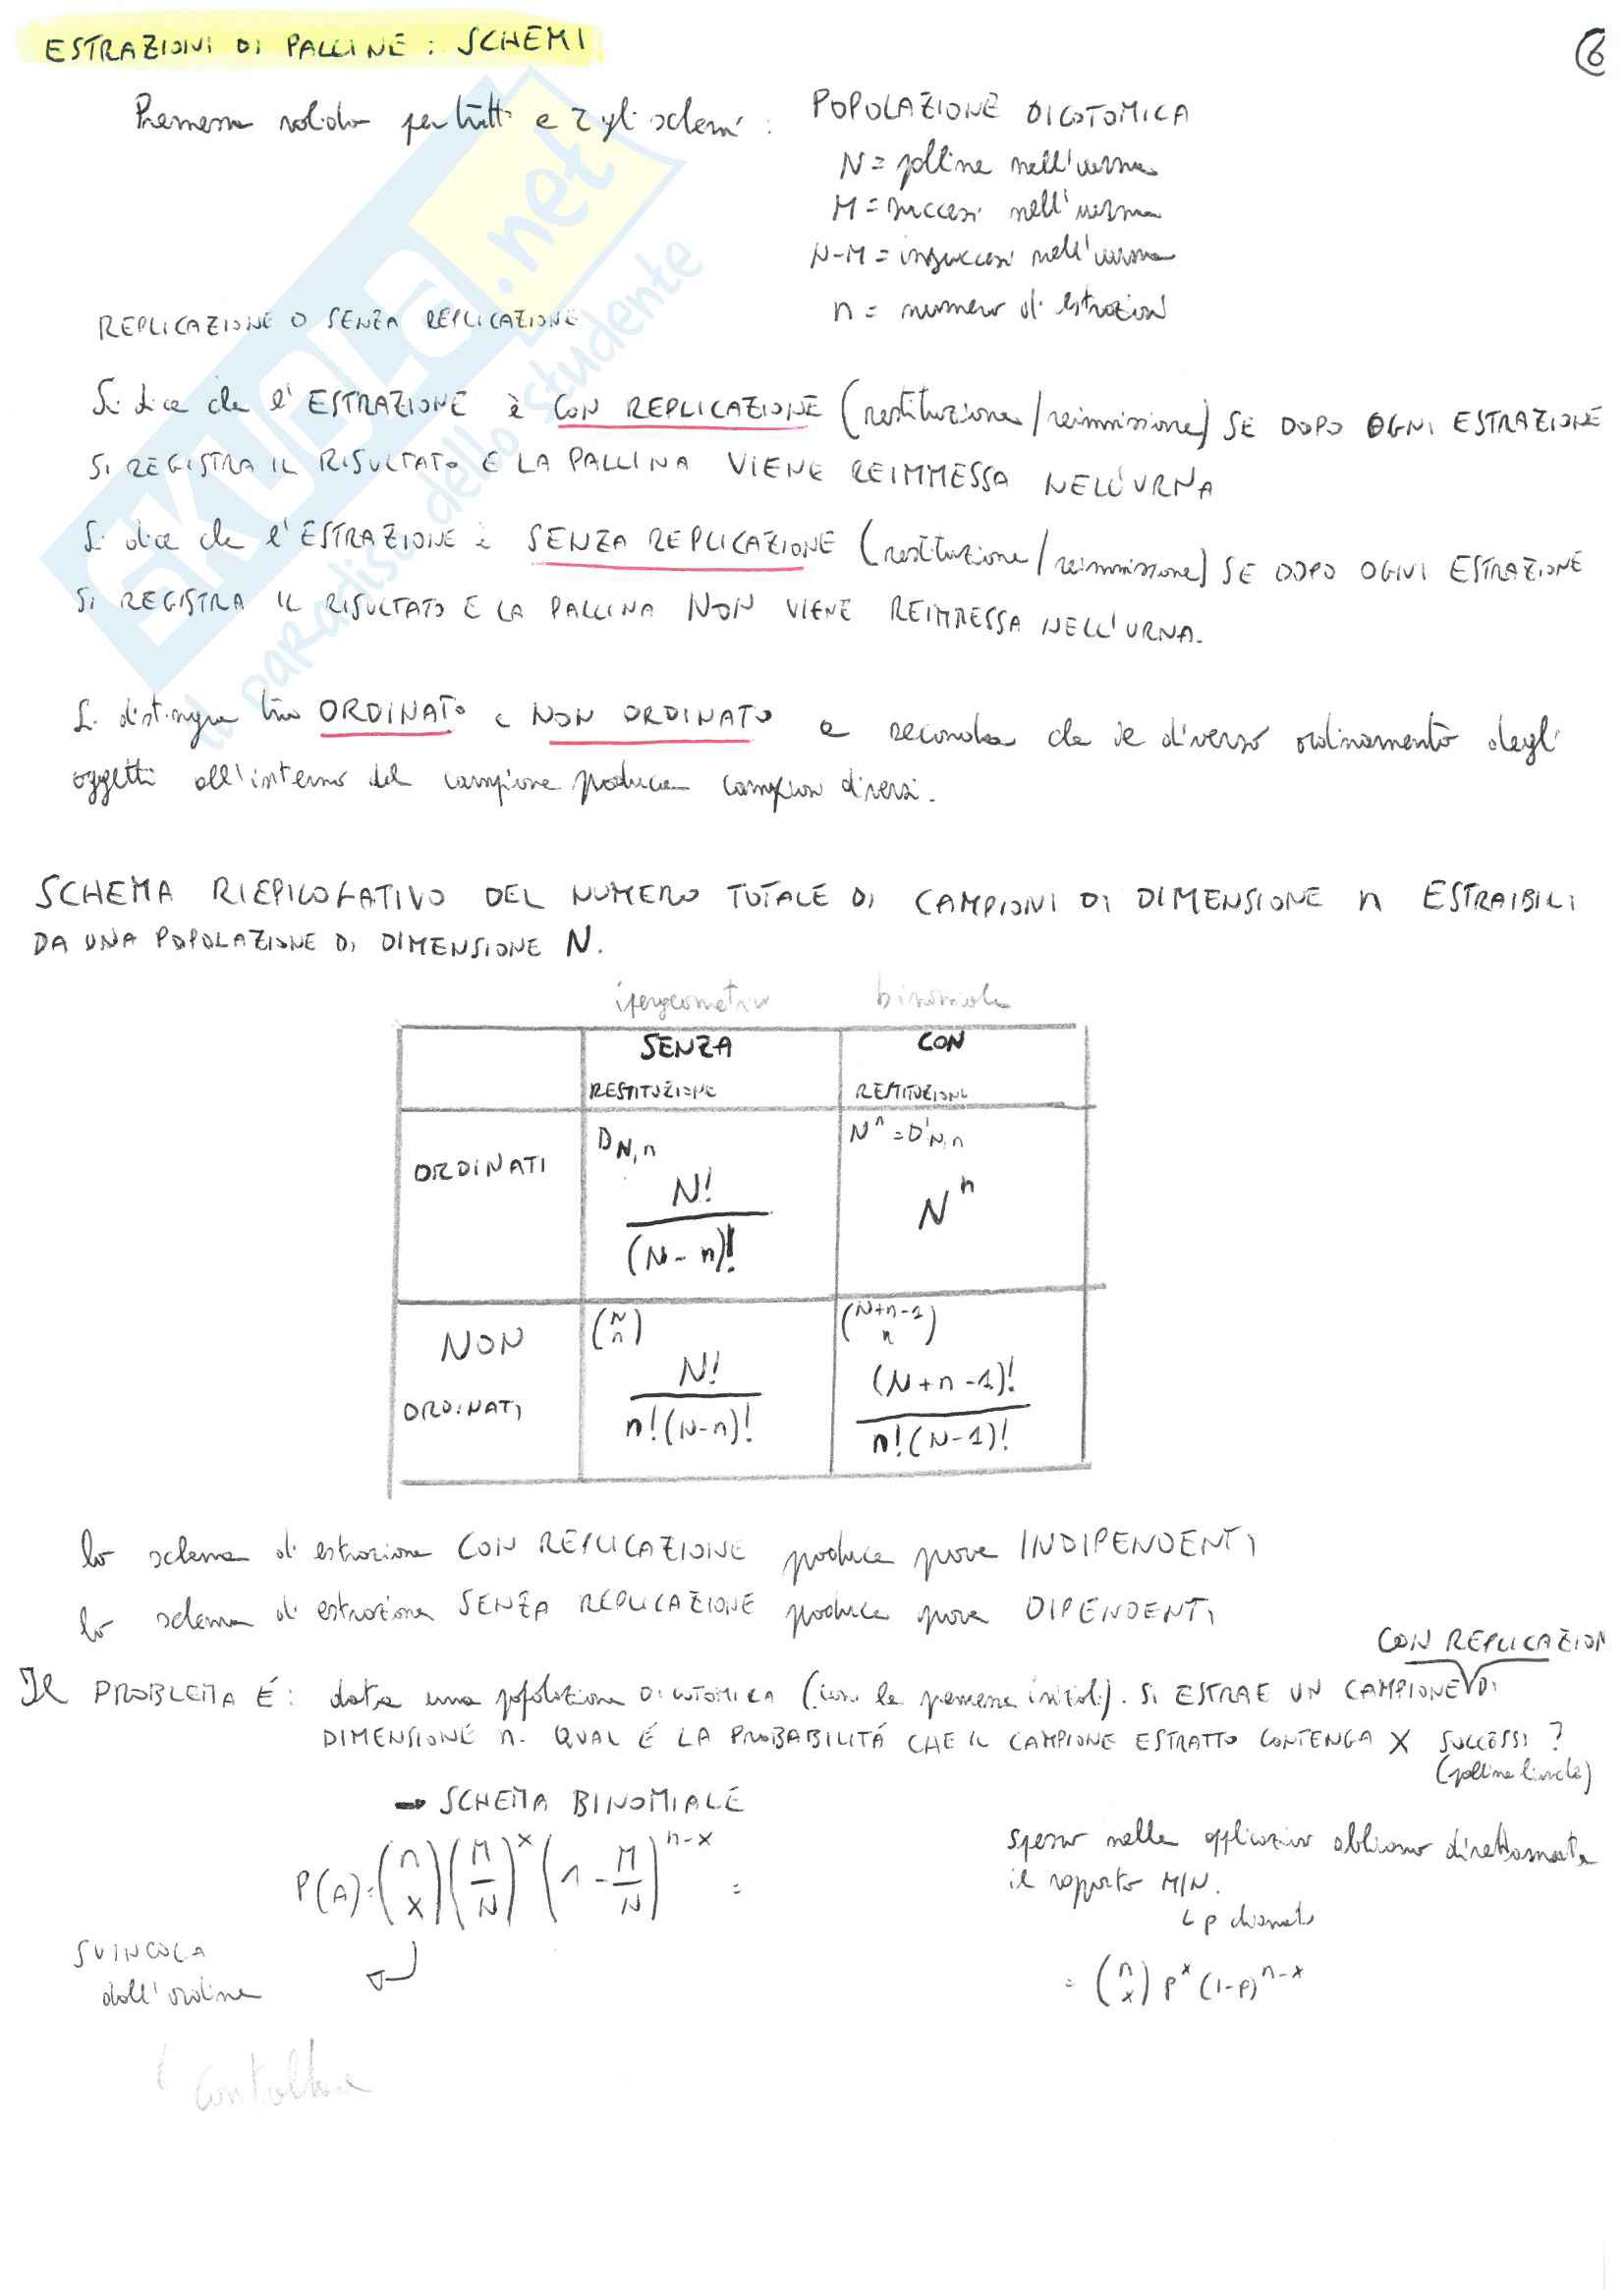 ESTRAZIONI DI PALLINE : SCHEMI
6
Premessa valida per tutti e 2 gli schemi :
POPOLAZIONE DICOTOMICA
N = palline nell'urna
M = successi nell'urna
N-M = insuccessi nell'urna
n = numero di estrazioni
REPLICAZIONE O SENZA REPLICAZIONE
Si dice che l'ESTRAZIONE è CON REPLICAZIONE (restituzione/reimmissione) SE DOPO OGNI ESTRAZIONE
SI REGISTRA IL RISULTATO E LA PALLINA VIENE REIMMESSA NELL'URNA
Si dice che l'ESTRAZIONE è SENZA REPLICAZIONE (restituzione/reimmissione) SE DOPO OGNI ESTRAZIONE
SI REGISTRA IL RISULTATO E LA PALLINA NON VIENE REIMMESSA NELL'URNA.
Si distingue tra ORDINATO e NON ORDINATO a seconda che il diverso ordinamento degli
oggetti all'interno del campione produca campioni diversi.
SCHEMA RIEPILOGATIVO DEL NUMERO TOTALE DI CAMPIONI DI DIMENSIONE n ESTRAIBILI
DA UNA POPOLAZIONE DI DIMENSIONE N.
ipergeometrica binomiale
SENZA RESTITUZIONE
CON RESTITUZIONE
ORDINATI
D_{N,n}
N!/(N-n)!
N^n = D'_{N,n}
N^n
NON ORDINATI
(N n)
N!/n!(N-n)!
(N+n-1 n)
(N+n-1)!/n!(N-1)!
lo schema di estrazione CON REPLICAZIONE produce prove INDIPENDENTI
lo schema di estrazione SENZA REPLICAZIONE produce prove DIPENDENTI
CON REPLICAZION
Il PROBLEMA È: data una popolazione DICOTOMICA (con le premesse iniziali). SI ESTRAE UN CAMPIONE DI
DIMENSIONE n. QUAL É LA PROBABILITÁ CHE IL CAMPIONE ESTRATTO CONTENGA X SUCCESSI ?
(palline bianche)
→ SCHEMA BINOMIALE
P(A) = (n x) (M/N)^x (1 - M/N)^{n-x} =
spesso nelle applicazioni abbiamo direttamente
il rapporto M/N.
↳ p chiamato
= (n x) p^x (1-p)^{n-x}
SVINCOLA
dall'ordine
SKUOLA.net
il paradiso dello studente